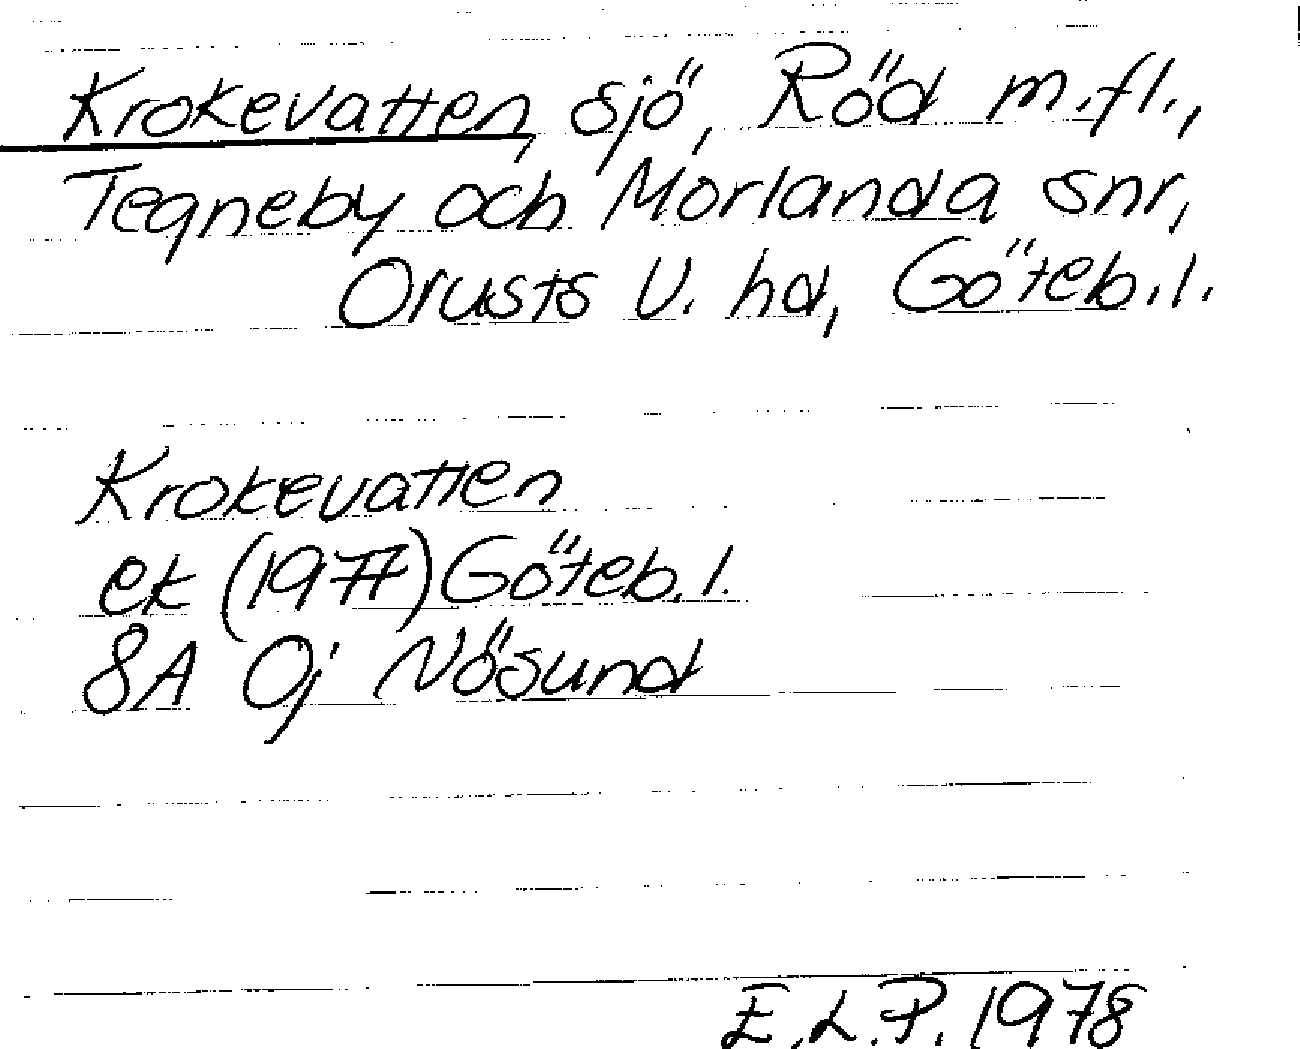 Krokevatten, sjö, Röd m.fl.,
Tegneby och Morlanda snr,
Orusts V. hd, Göteb.l.
Krokevatten
ek (1977) Göteb.l.
8A 0j Nösund
E.L.P. 1978